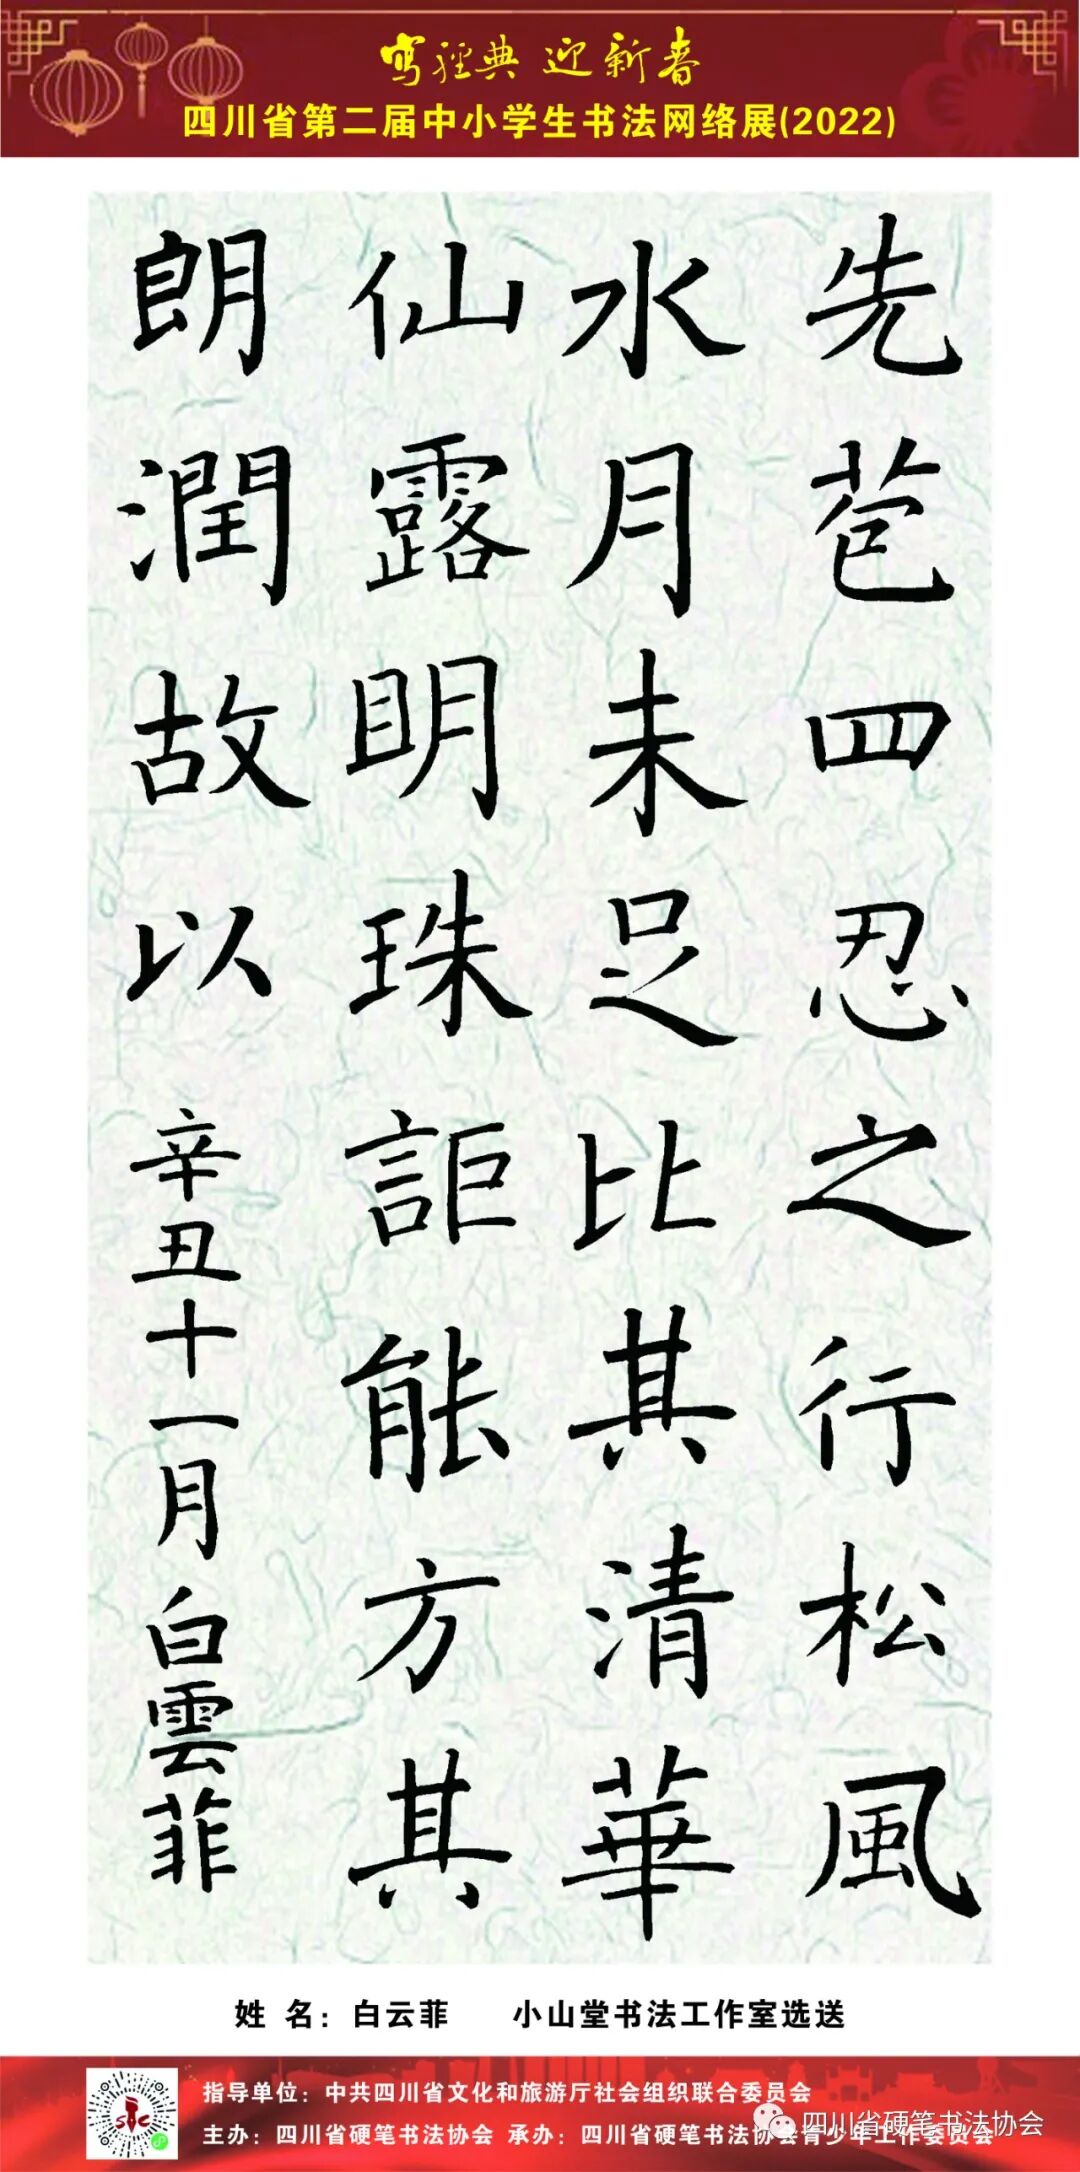 写经典 迎新春
四川省第二届中小学生书法网络展(2022)
先苞四忍之行松風
水月未足比其清華
仙露明珠詎能方其
朗潤故以
辛丑十一月白雲菲
姓 名：白云菲 小山堂书法工作室选送
指导单位：中共四川省文化和旅游厅社会组织联合委员会
主办：四川省硬笔书法协会 承办：四川省硬笔书法协会青少年工作委员会
四川省硬笔书法协会